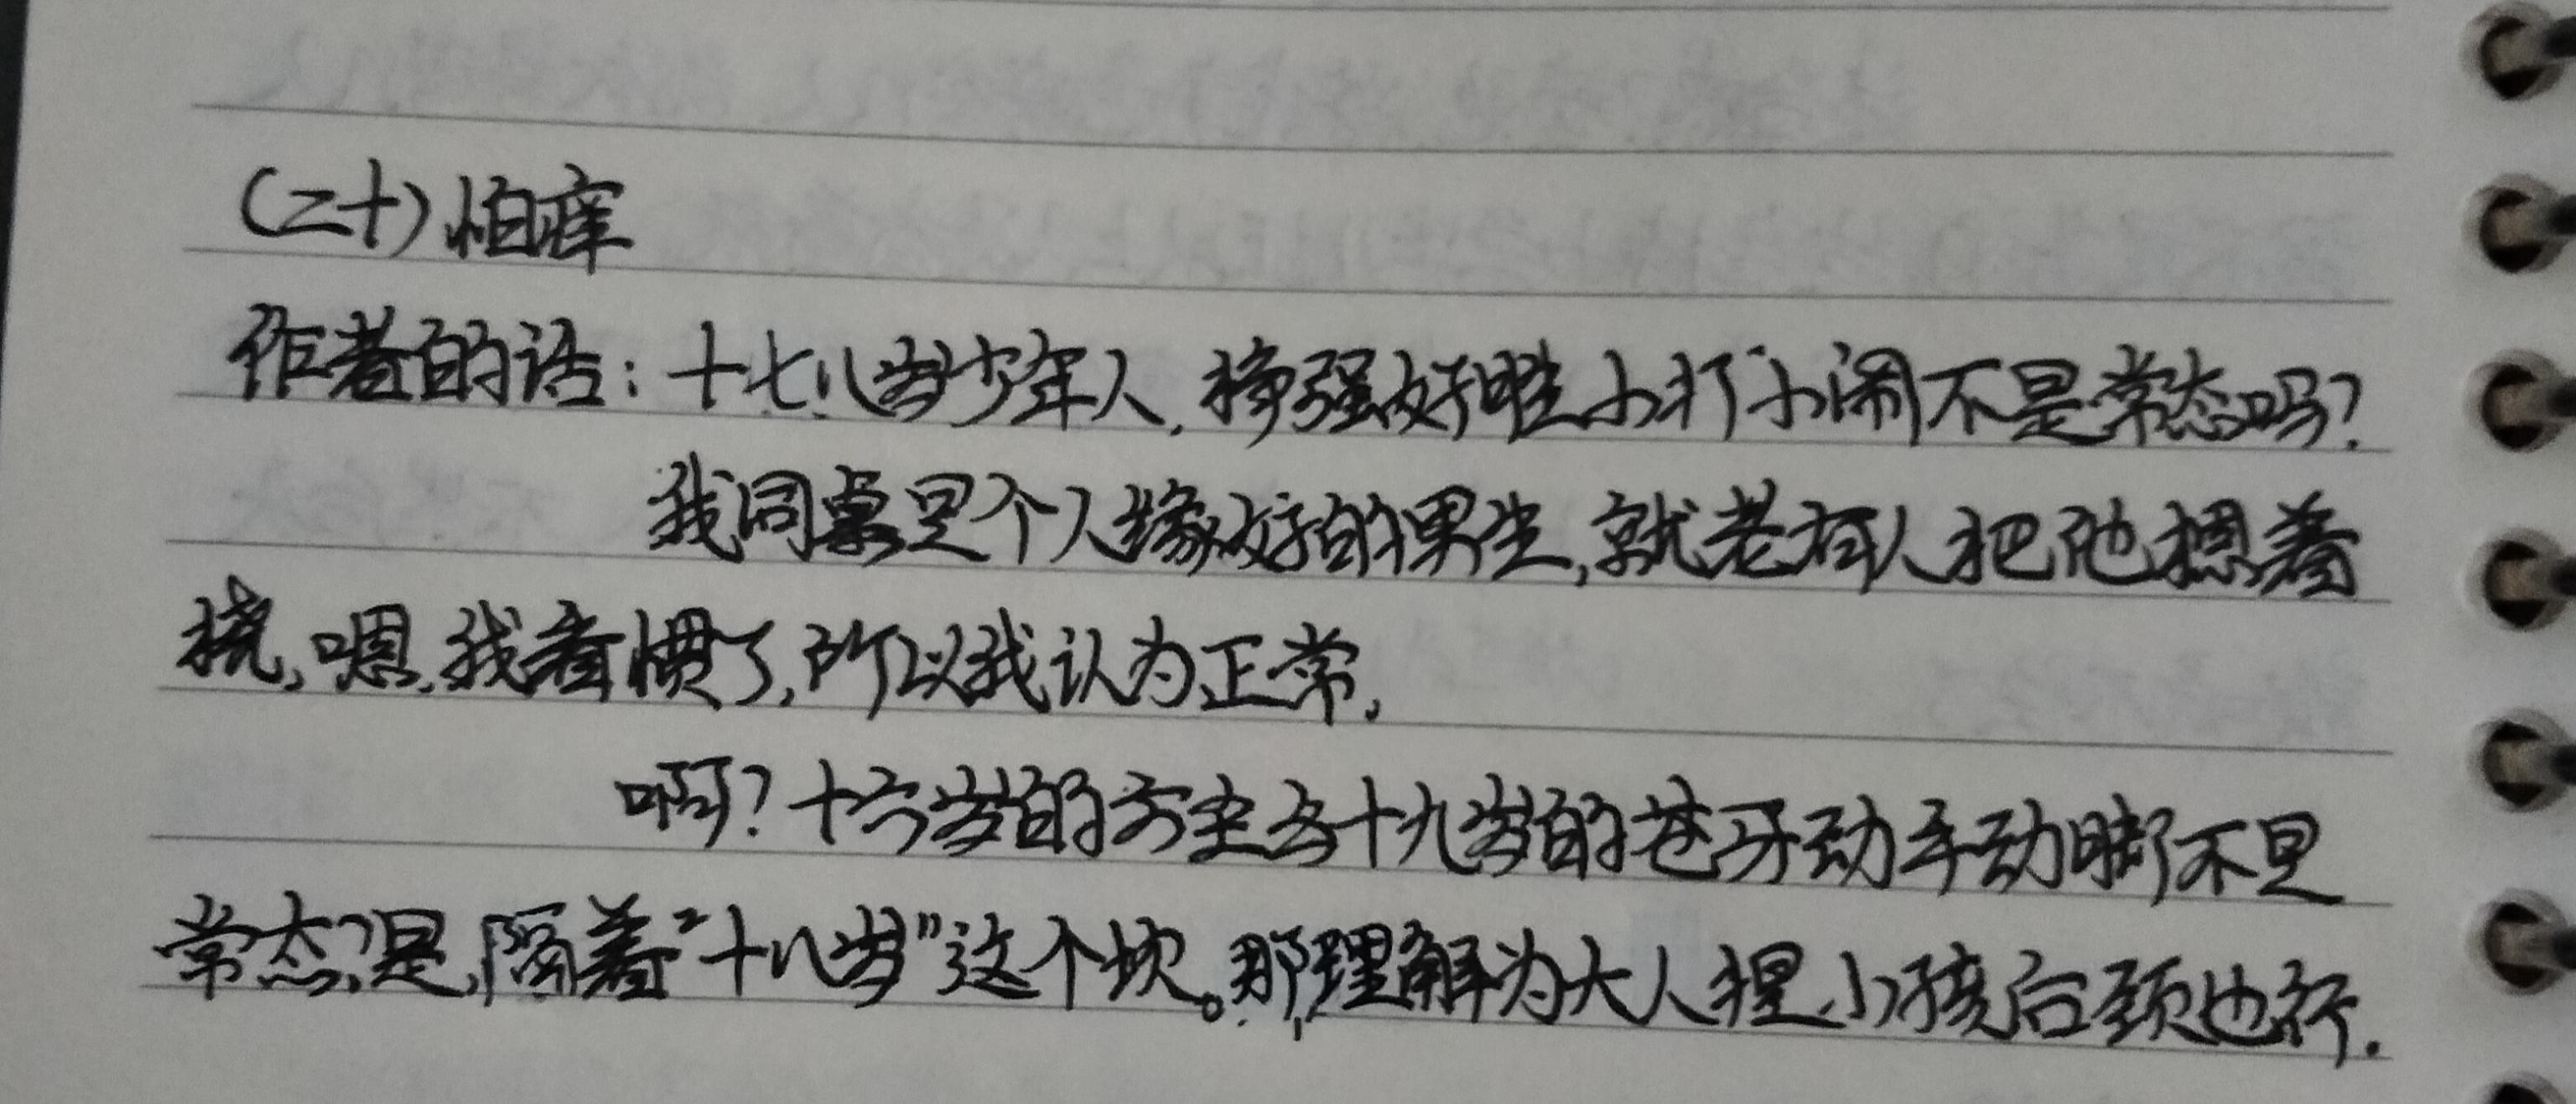 (二十)怕痒
作者的话：十七八岁少年人,挣强好胜小打小闹不是常态吗？
我同桌是个人缘好的男生,就老有人把他摁着
挠,嗯,我看惯了,所以我认为正常,
啊？十六岁的方圭去十九岁的苍牙动手动脚不是
常态？是,隔着“十八岁”这个坎。那理解为大人捏小孩后颈也行.